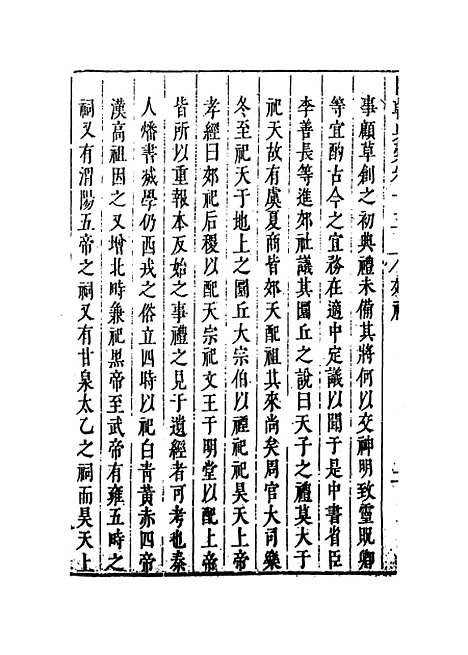 事顧草創之初典禮未備其將何以交神明致靈貺卿
等宜酌古今之宜務在適中定議以聞于是中書省臣
李善長等進郊社議其圜丘之說曰天子之禮莫大于
祀天故有虞夏商皆郊天配祖其來尚矣周官大司樂
冬至祀天于地上之圜丘大宗伯以禋祀祀昊天上帝
孝經曰郊祀后稷以配天宗祀文王于明堂以配上帝
皆所以重報本反始之事禮之見于遺經者可考也秦
人燔書滅學仍西戎之俗立四時以祀白青黃赤四帝
漢高祖因之又增北時兼祀黑帝至武帝有雍五時之
祠又有渭陽五帝之祠又有甘泉太乙之祠而昊天上